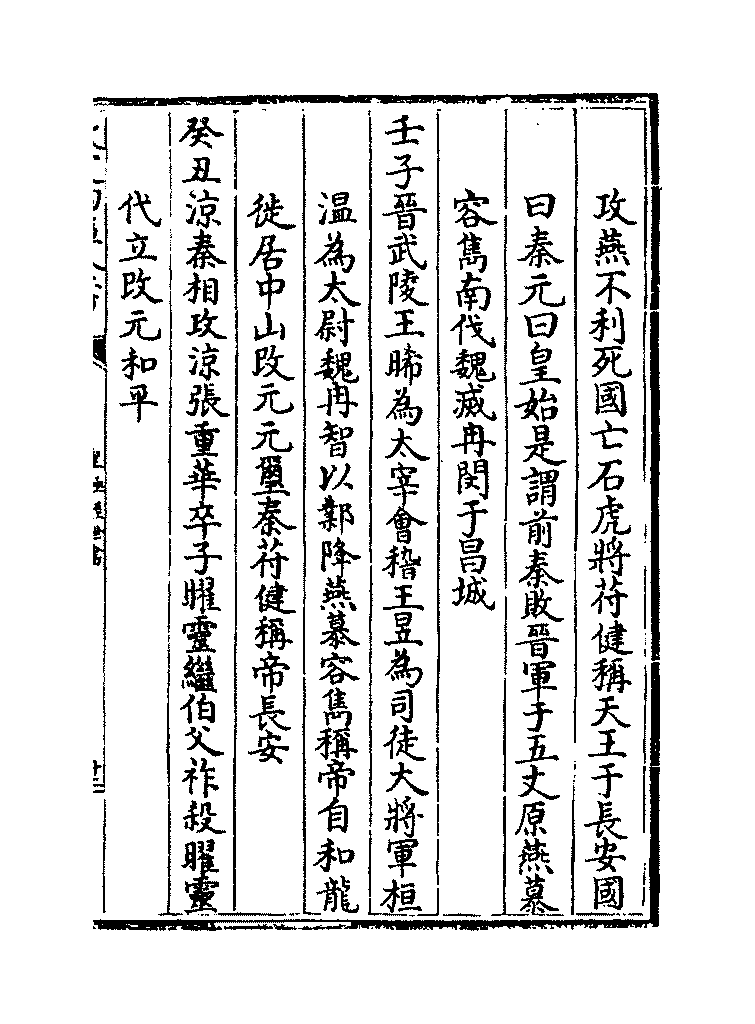 攻燕不利死國亡石虎將苻健稱天王于長安國
曰秦元曰皇始是謂前秦敗晉軍于五丈原燕慕
容雋南伐魏滅冉閔于昌城
壬子晉武陵王晞為太宰會稽王昱為司徒大將軍桓
溫為太尉魏冉智以鄴降燕慕容雋稱帝自和龍
徙居中山改元元璽秦苻健稱帝長安
癸丑涼秦相攻涼張重華卒子曜靈繼伯父祚殺曜靈
代立改元和平
皇極經世書